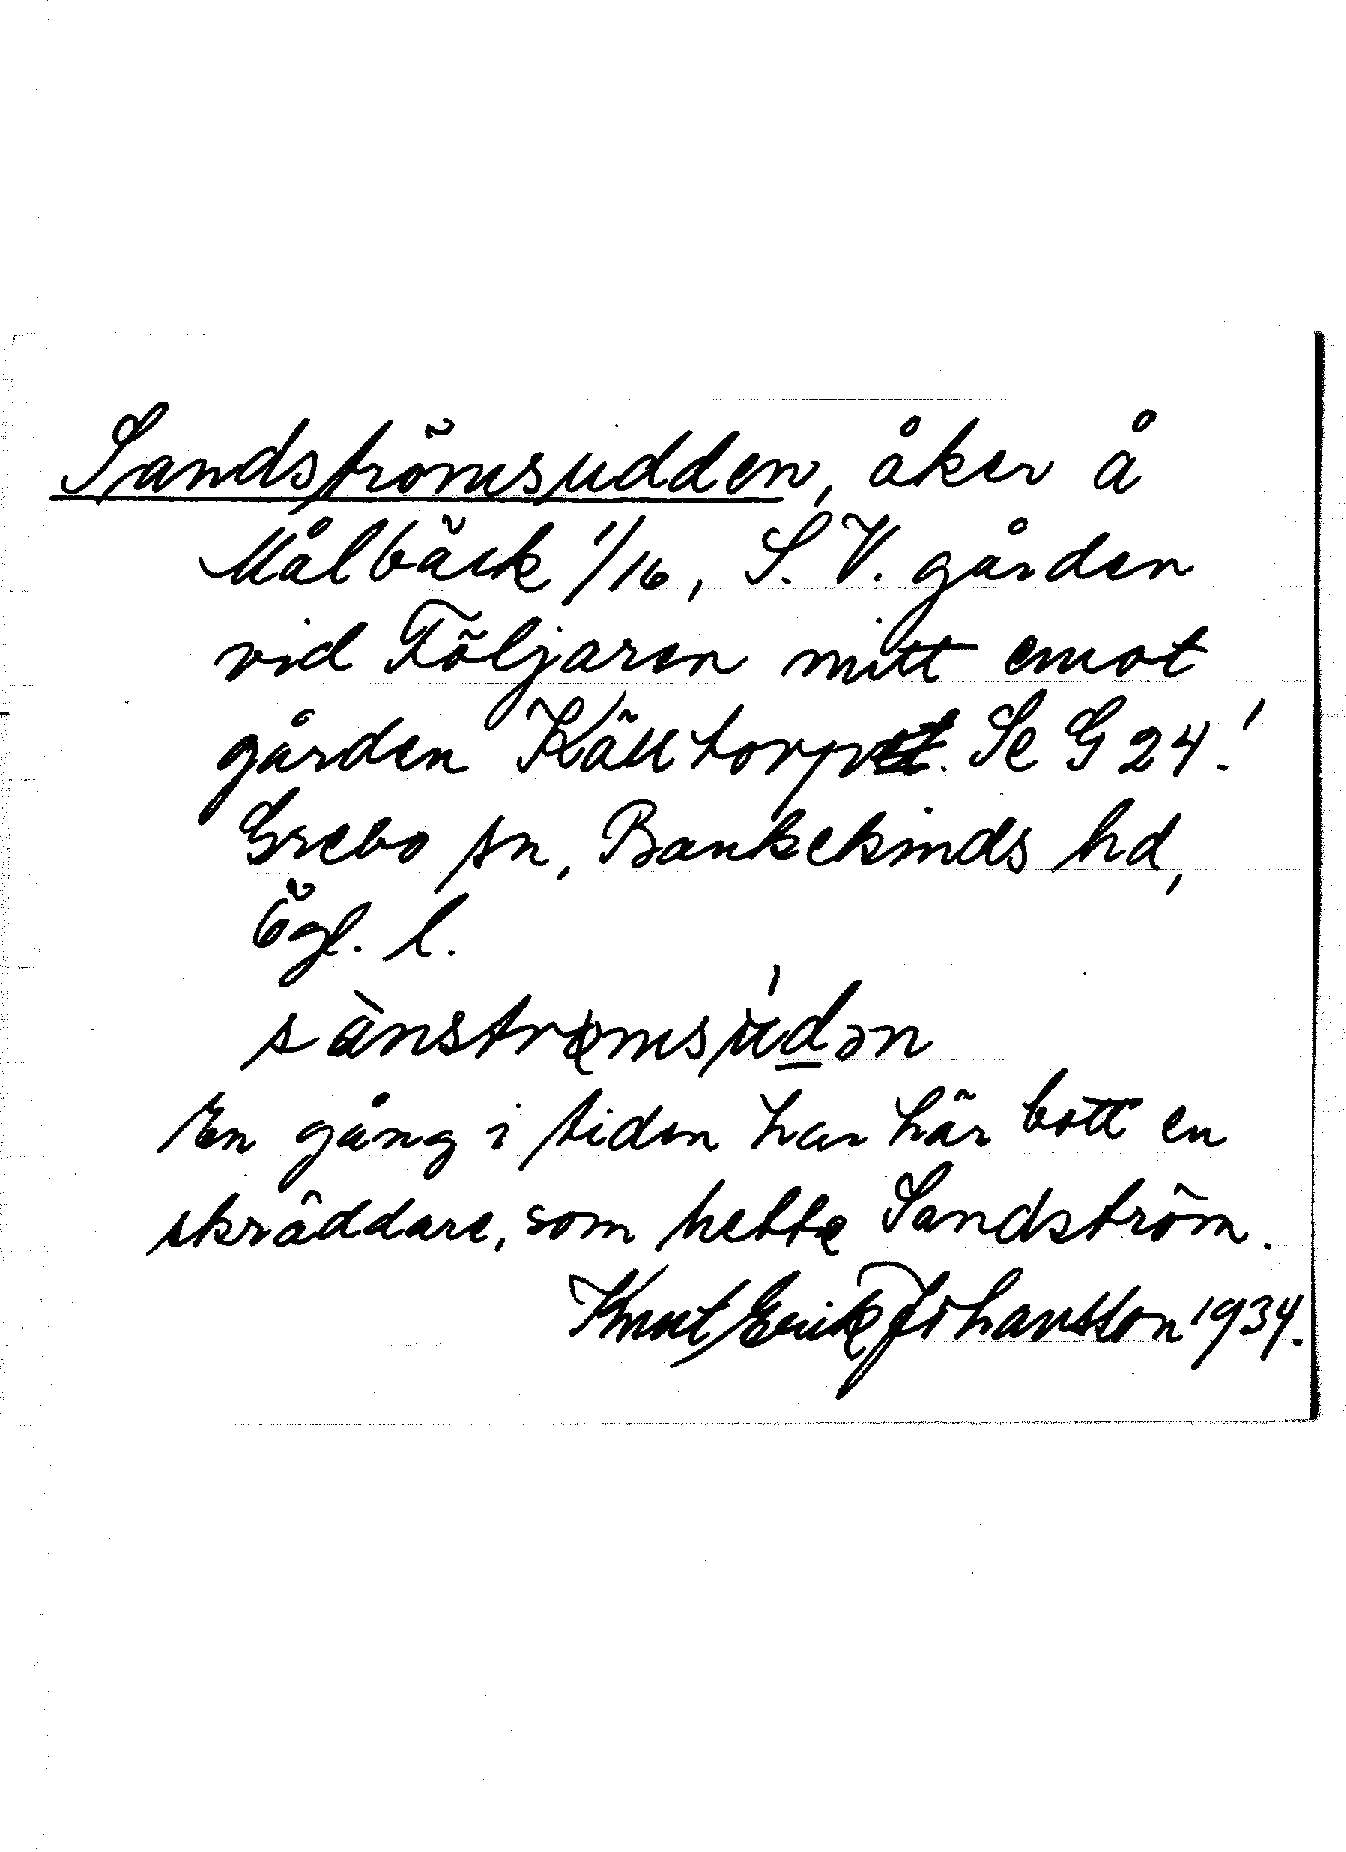 Sandströmsudden, åker å
Målbäck 1/16, S.V. gården
vid Följaren mitt emot
gården Källtorpet. Se G 24!
Grebo sn, Bankekinds hd,
Ögl. l.
sànstrømsúdən
En gång i tiden har här bott en
skräddare, som hette Sandström.
Knut Erik Johansson 1934.